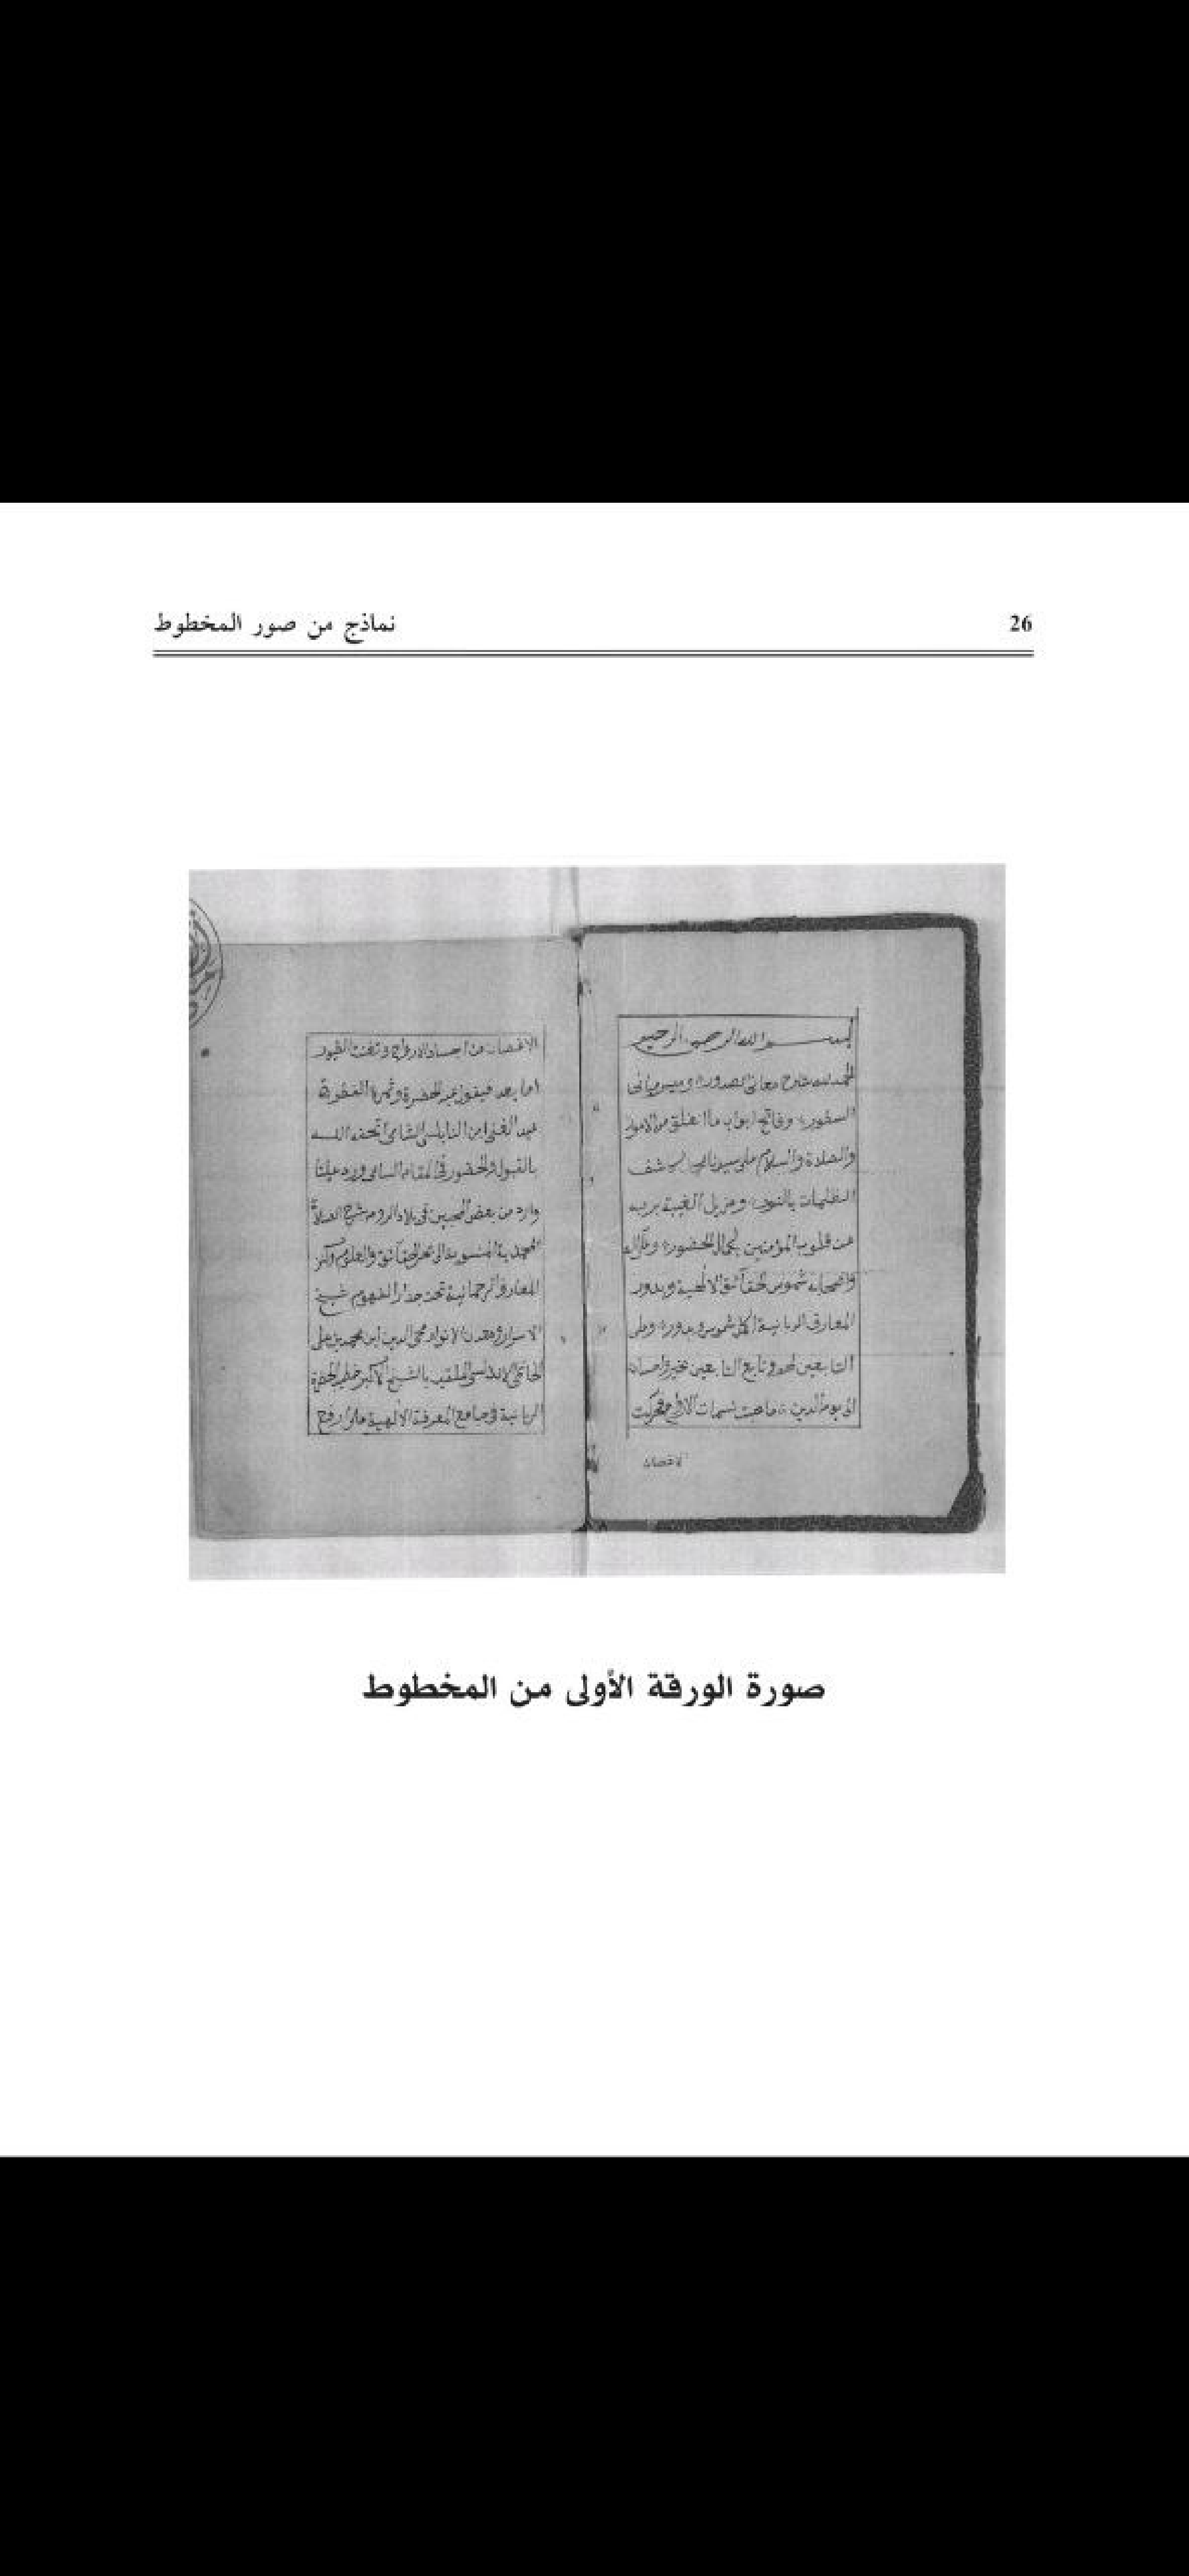 نماذج من صور المخطوط
26
بسم الله الرحمن الرحيم
الحمد لله شارح معاني الصدور وميسر مباني
السطور وفاتح ابواب ما انغلق من الامور
والصلاة والسلام على سيدنا كاشف
الظلمات بالنور ومزيل الغيبة بربه
عن قلوب المؤمنين الحضور وعلى اله
واصحابه شموس الحقائق الالهية وبدور
المعارف الربانية شموس وبدور وعلى
التابعين لهم وتابع التابعين بخير واحسان
الى يوم الدين ما هبت نسمات الارواح فحركت
الاغصان
الاغصان من اجساد الارواح القبور
اما بعد فيقول عبد الحضرة
عبد الغني ابن النابلسي الشامي اتحفه الله
بالقبول والحضور في المقام السامي ورد علينا
وارد من بعض المحبين في بلاد الروم شرح الصلاة
المنسوبة الى بحر الحقائق والعلوم
المعارف الرحمانية تحت جدار الفهوم شيخ
الاسرار ومعدن الانوار محي الدين ابن محمد بن علي
الحاتمي الاندلسي الملقب بالشيخ الاكبر خطيب الحضرة
الربانية في جامع المعرفة الالهية على ارفع
صورة الورقة الأولى من المخطوط